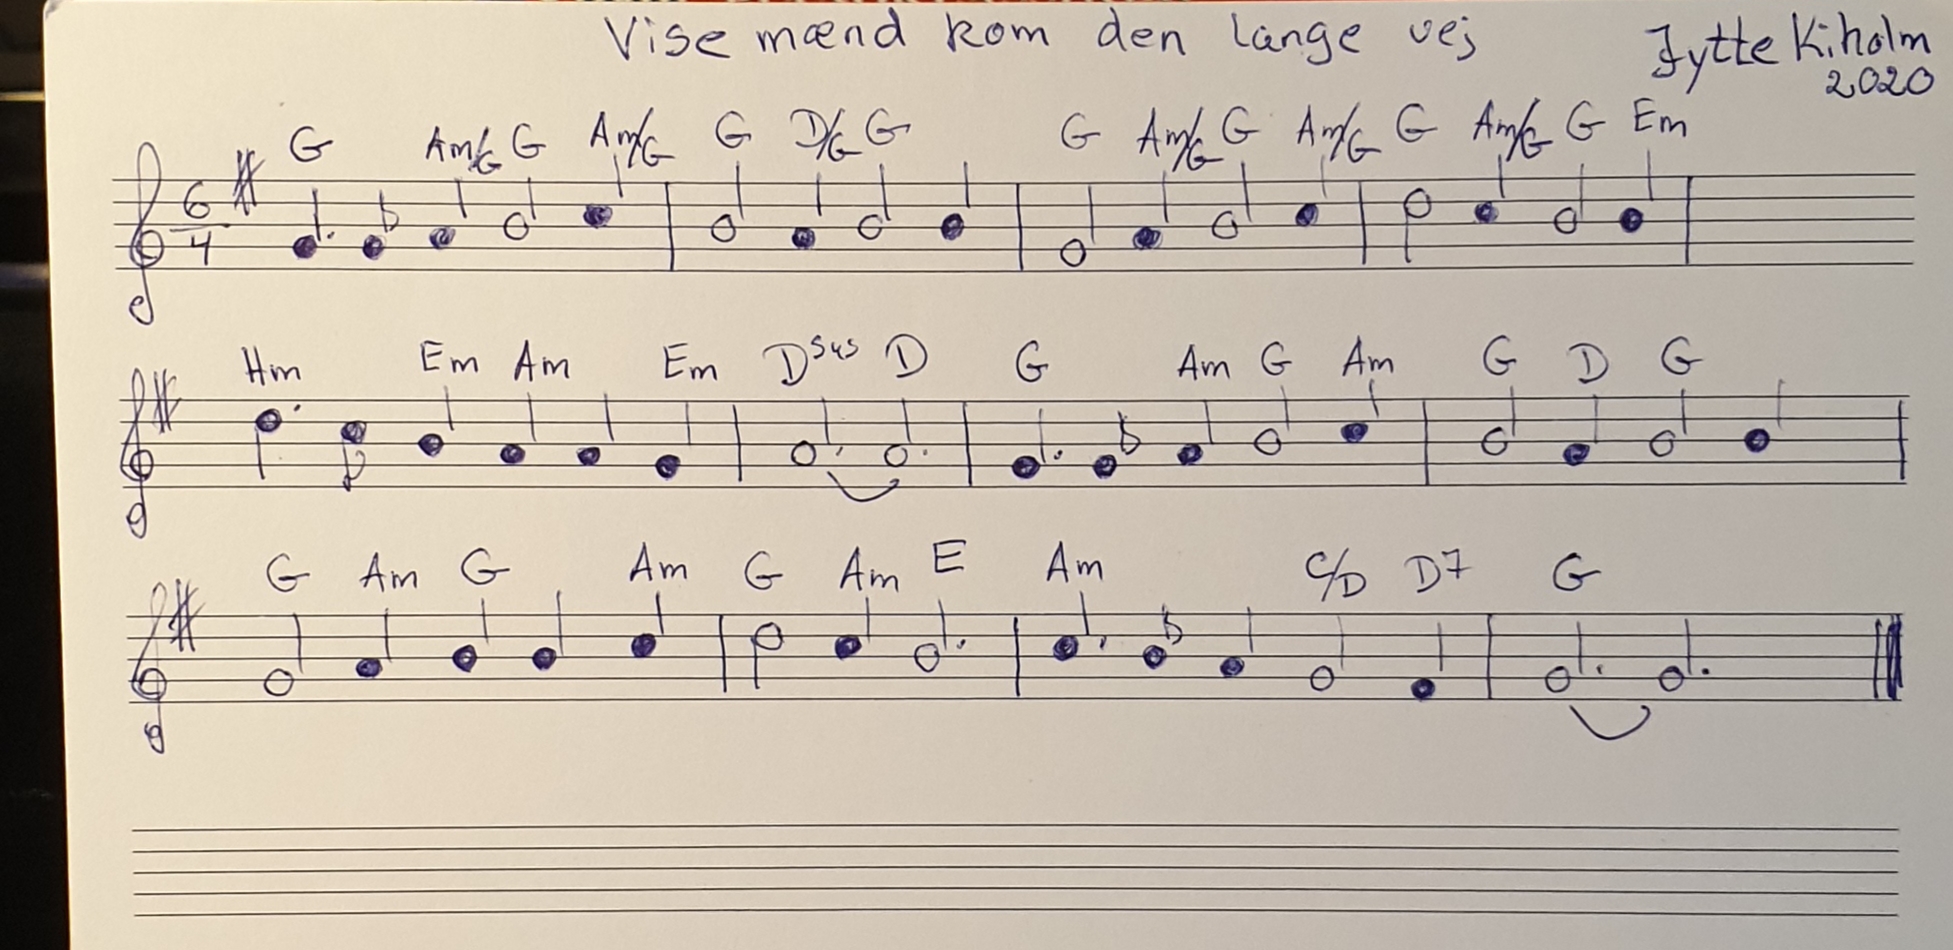 Vise mænd kom den lange vej
Jytte Kiholm
2020
G Am/G G Am/G G D/G G G Am/G G Am/G G Am/G G Em
6
4
Hm Em Am Em Dsus D G Am G Am G D G
G Am G Am G Am E Am C/D D7 G